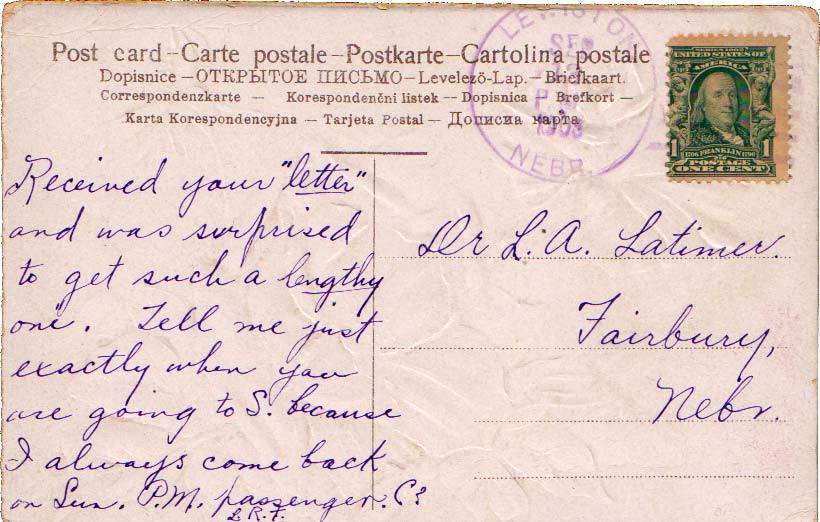 Post card – Carte postale – Postkarte – Cartolina postale
Dopisnice – ОТКРЫТОЕ ПИСЬМО – Levelező-Lap. – Briefkaart.
Correspondenzkarte — Korespondenční listek – Dopisnica – Brefkort –
Karta Korespondencyjna — Tarjeta Postal — Дописна карта
LEWISTON
SEP
P
NEBR.
SERIES 1902
UNITED STATES OF
AMERICA
1706 FRANKLIN 1790
1 1
POSTAGE
ONE CENT
Received your "letter"
and was surprised
to get such a lengthy
one". Tell me just
exactly when you
are going to S. because
I always come back
on Sun. P.M. passenger.
L.R.F.
Dr L. A. Latimer.
Fairbury,
Nebr.